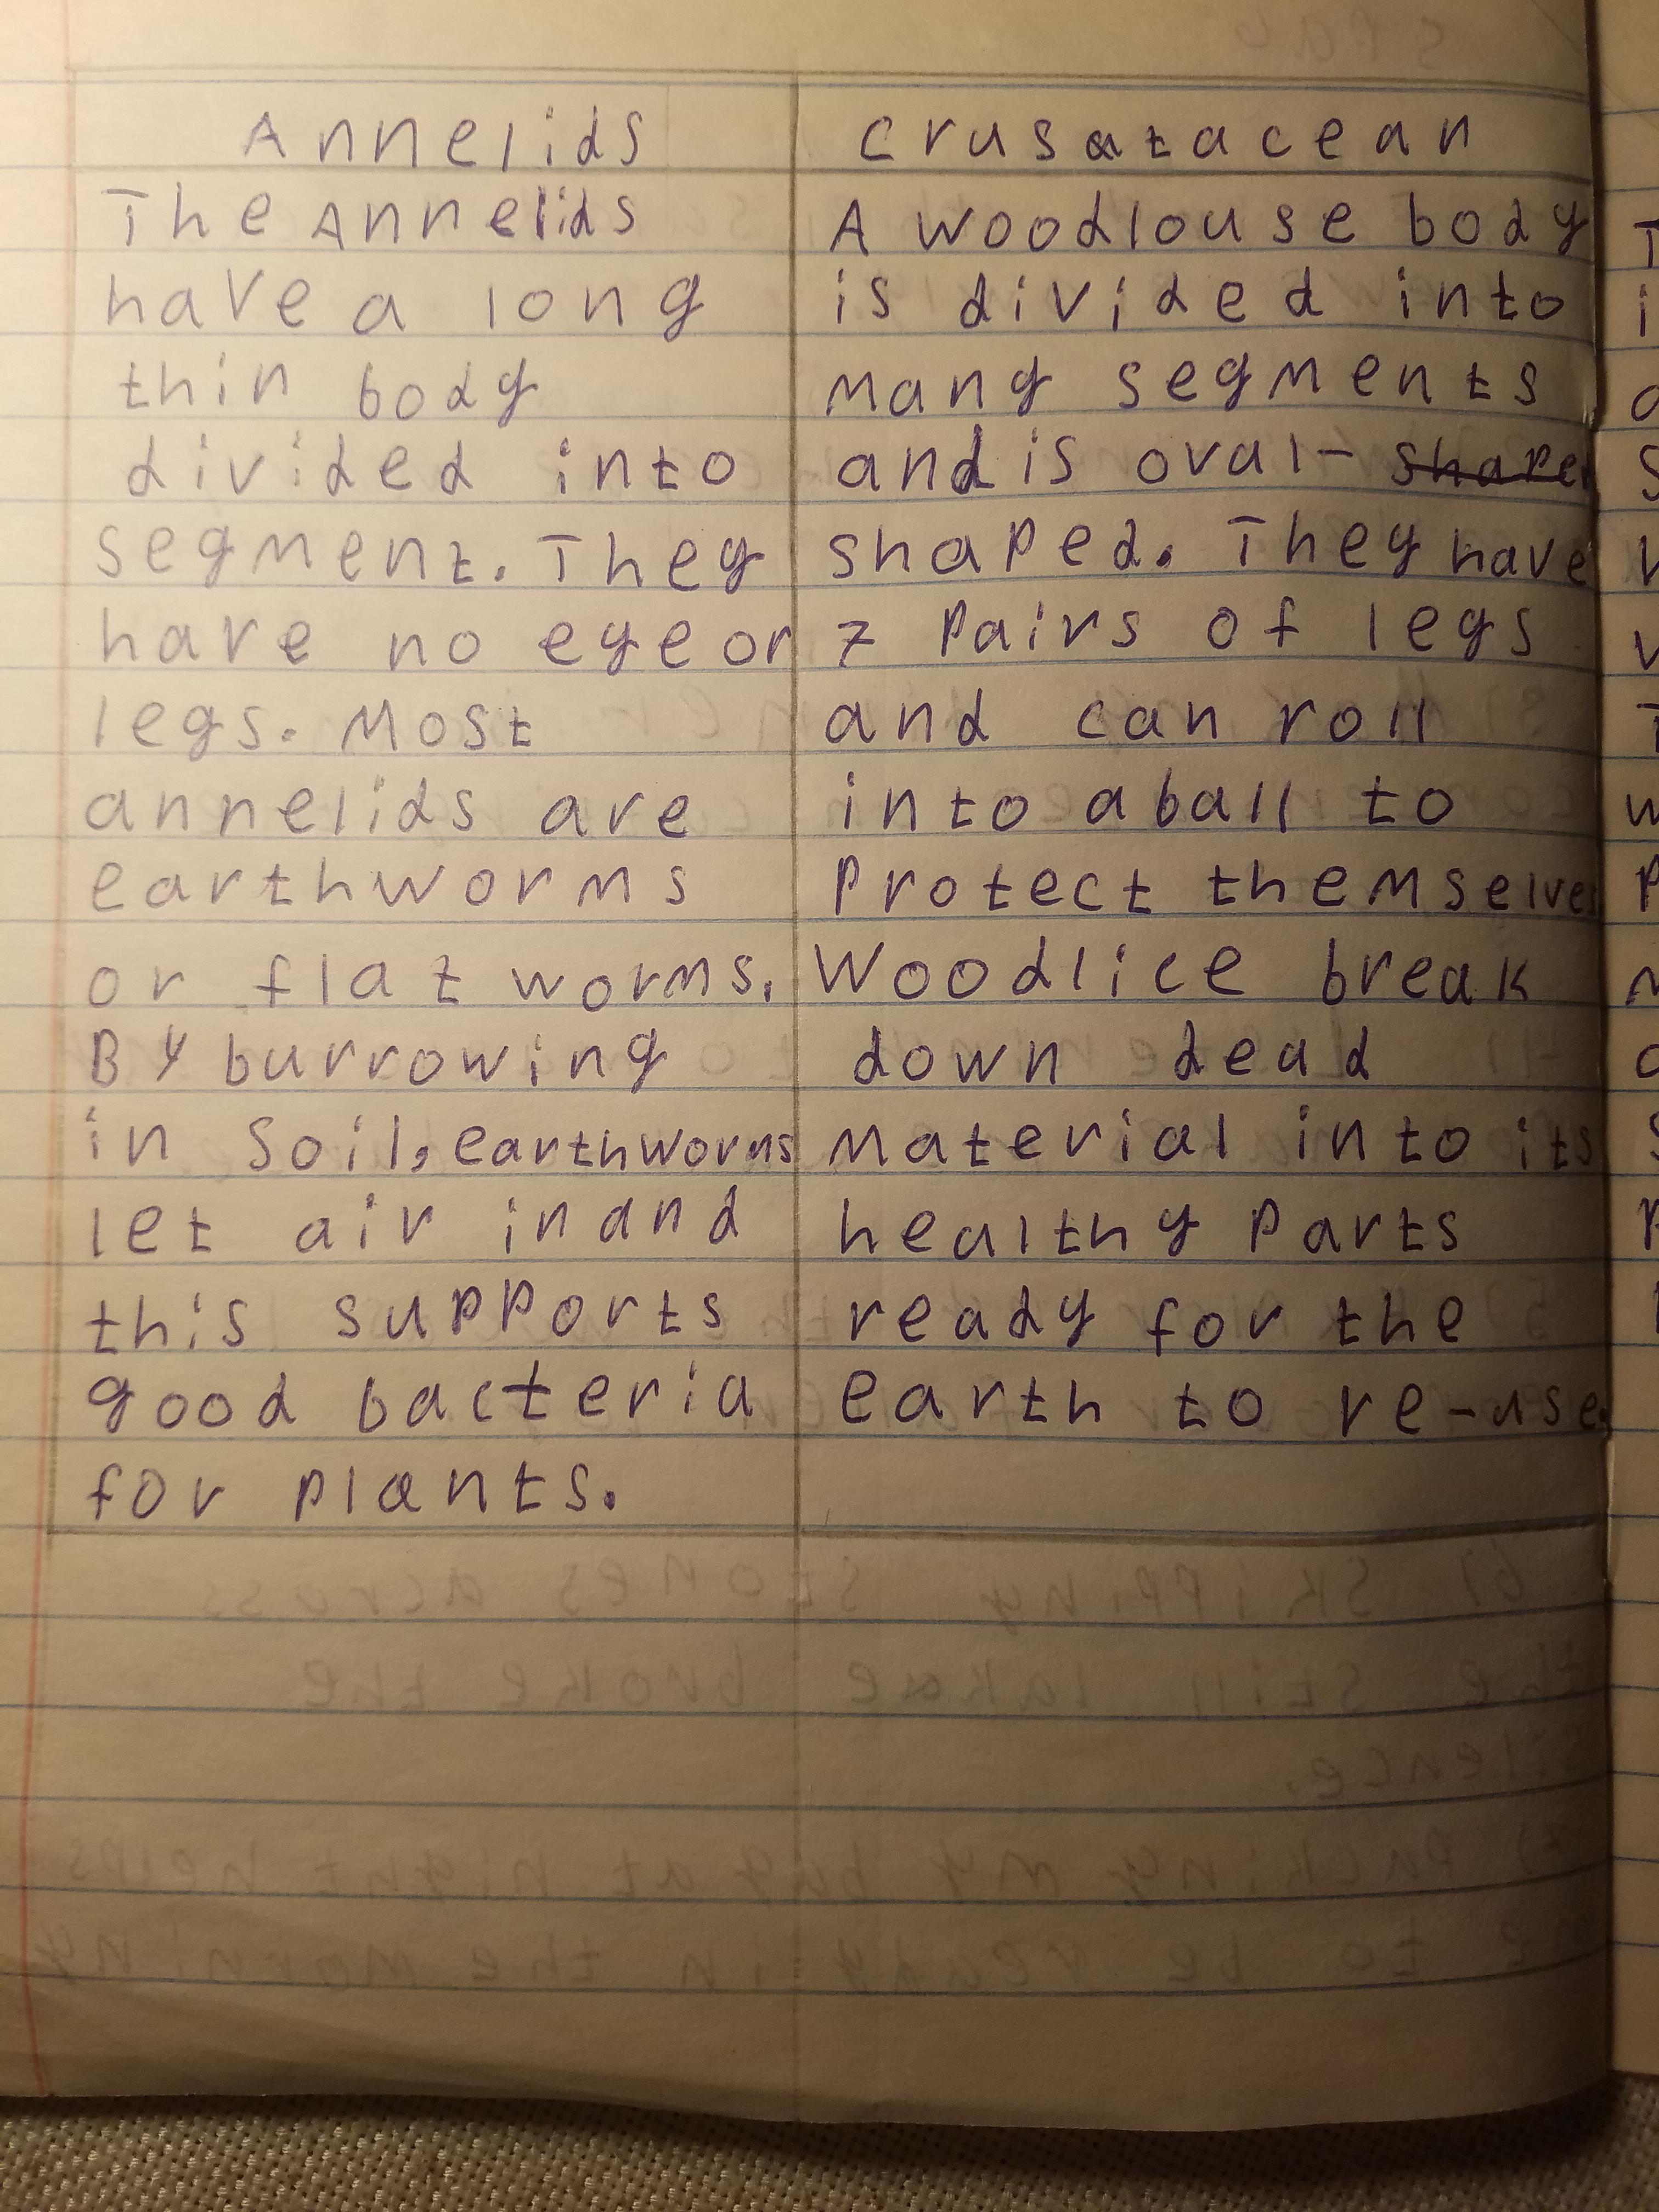 Annelids
The Annelids
have a long
thin body
divided into
segment. They
have no eye or
legs. Most
annelids are
earthworms
or flat worms.
By burrowing
in soil, earthworms
let air in and
this supports
good bacteria
for plants.
crusatacean
A woodlouse body
is divided into
many segments
and is oval- shape
shaped. They have
7 pairs of legs
and can roll
into a ball to
protect themselves
Woodlice break
down dead
material into its
healthy parts
ready for the
earth to re-use.